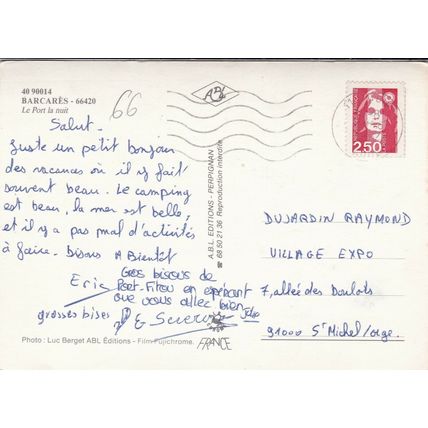 40 90014
BARCARÈS - 66420
Le Port la nuit
66
Salut -
Juste un petit bonjour
des vacances où il y fait
souvent beau. Le camping
est beau, la mer est belle,
et il y a pas mal d'activités
à faire. Bisous A Bientôt
Eric
Gros bisous de
Port-Fitou en espérant
que vous allez bien
grosses bises
Photo : Luc Berget ABL Éditions - Film Fujichrome.
A.B.L. EDITIONS - PERPIGNAN
☎ 68 50 21 36 Reproduction interdite
ABL
FRANCE
2,50
DUJARDIN RAYMOND
VILLAGE EXPO
7, allée des Boulots
91000 St Michel/orge.